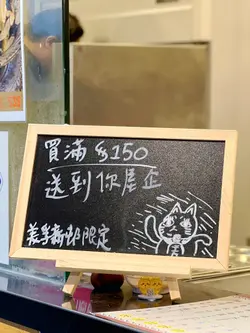 買滿 $150
送到你屋企
長洲新邨限定